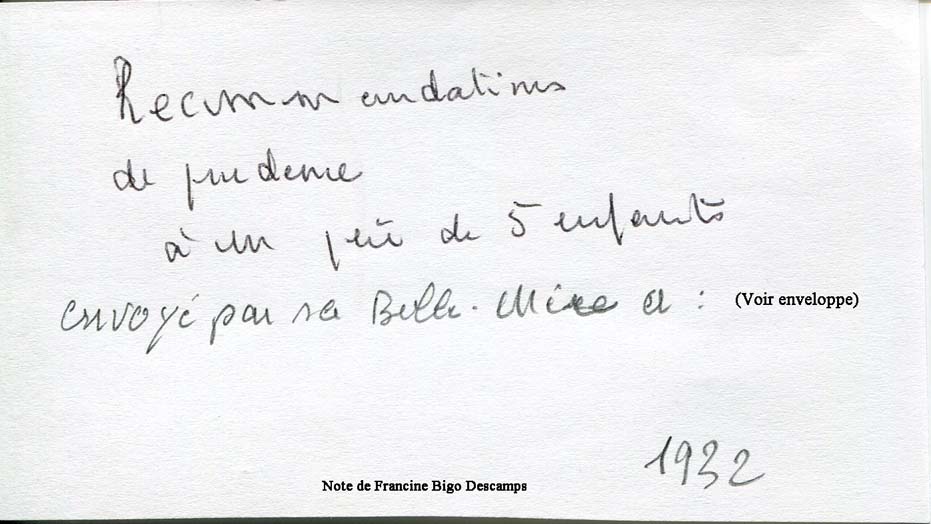 Recommandations
de prudence
à un père de 5 enfants
envoyé par sa Belle-Mère à : (Voir enveloppe)
1932
Note de Francine Bigo Descamps